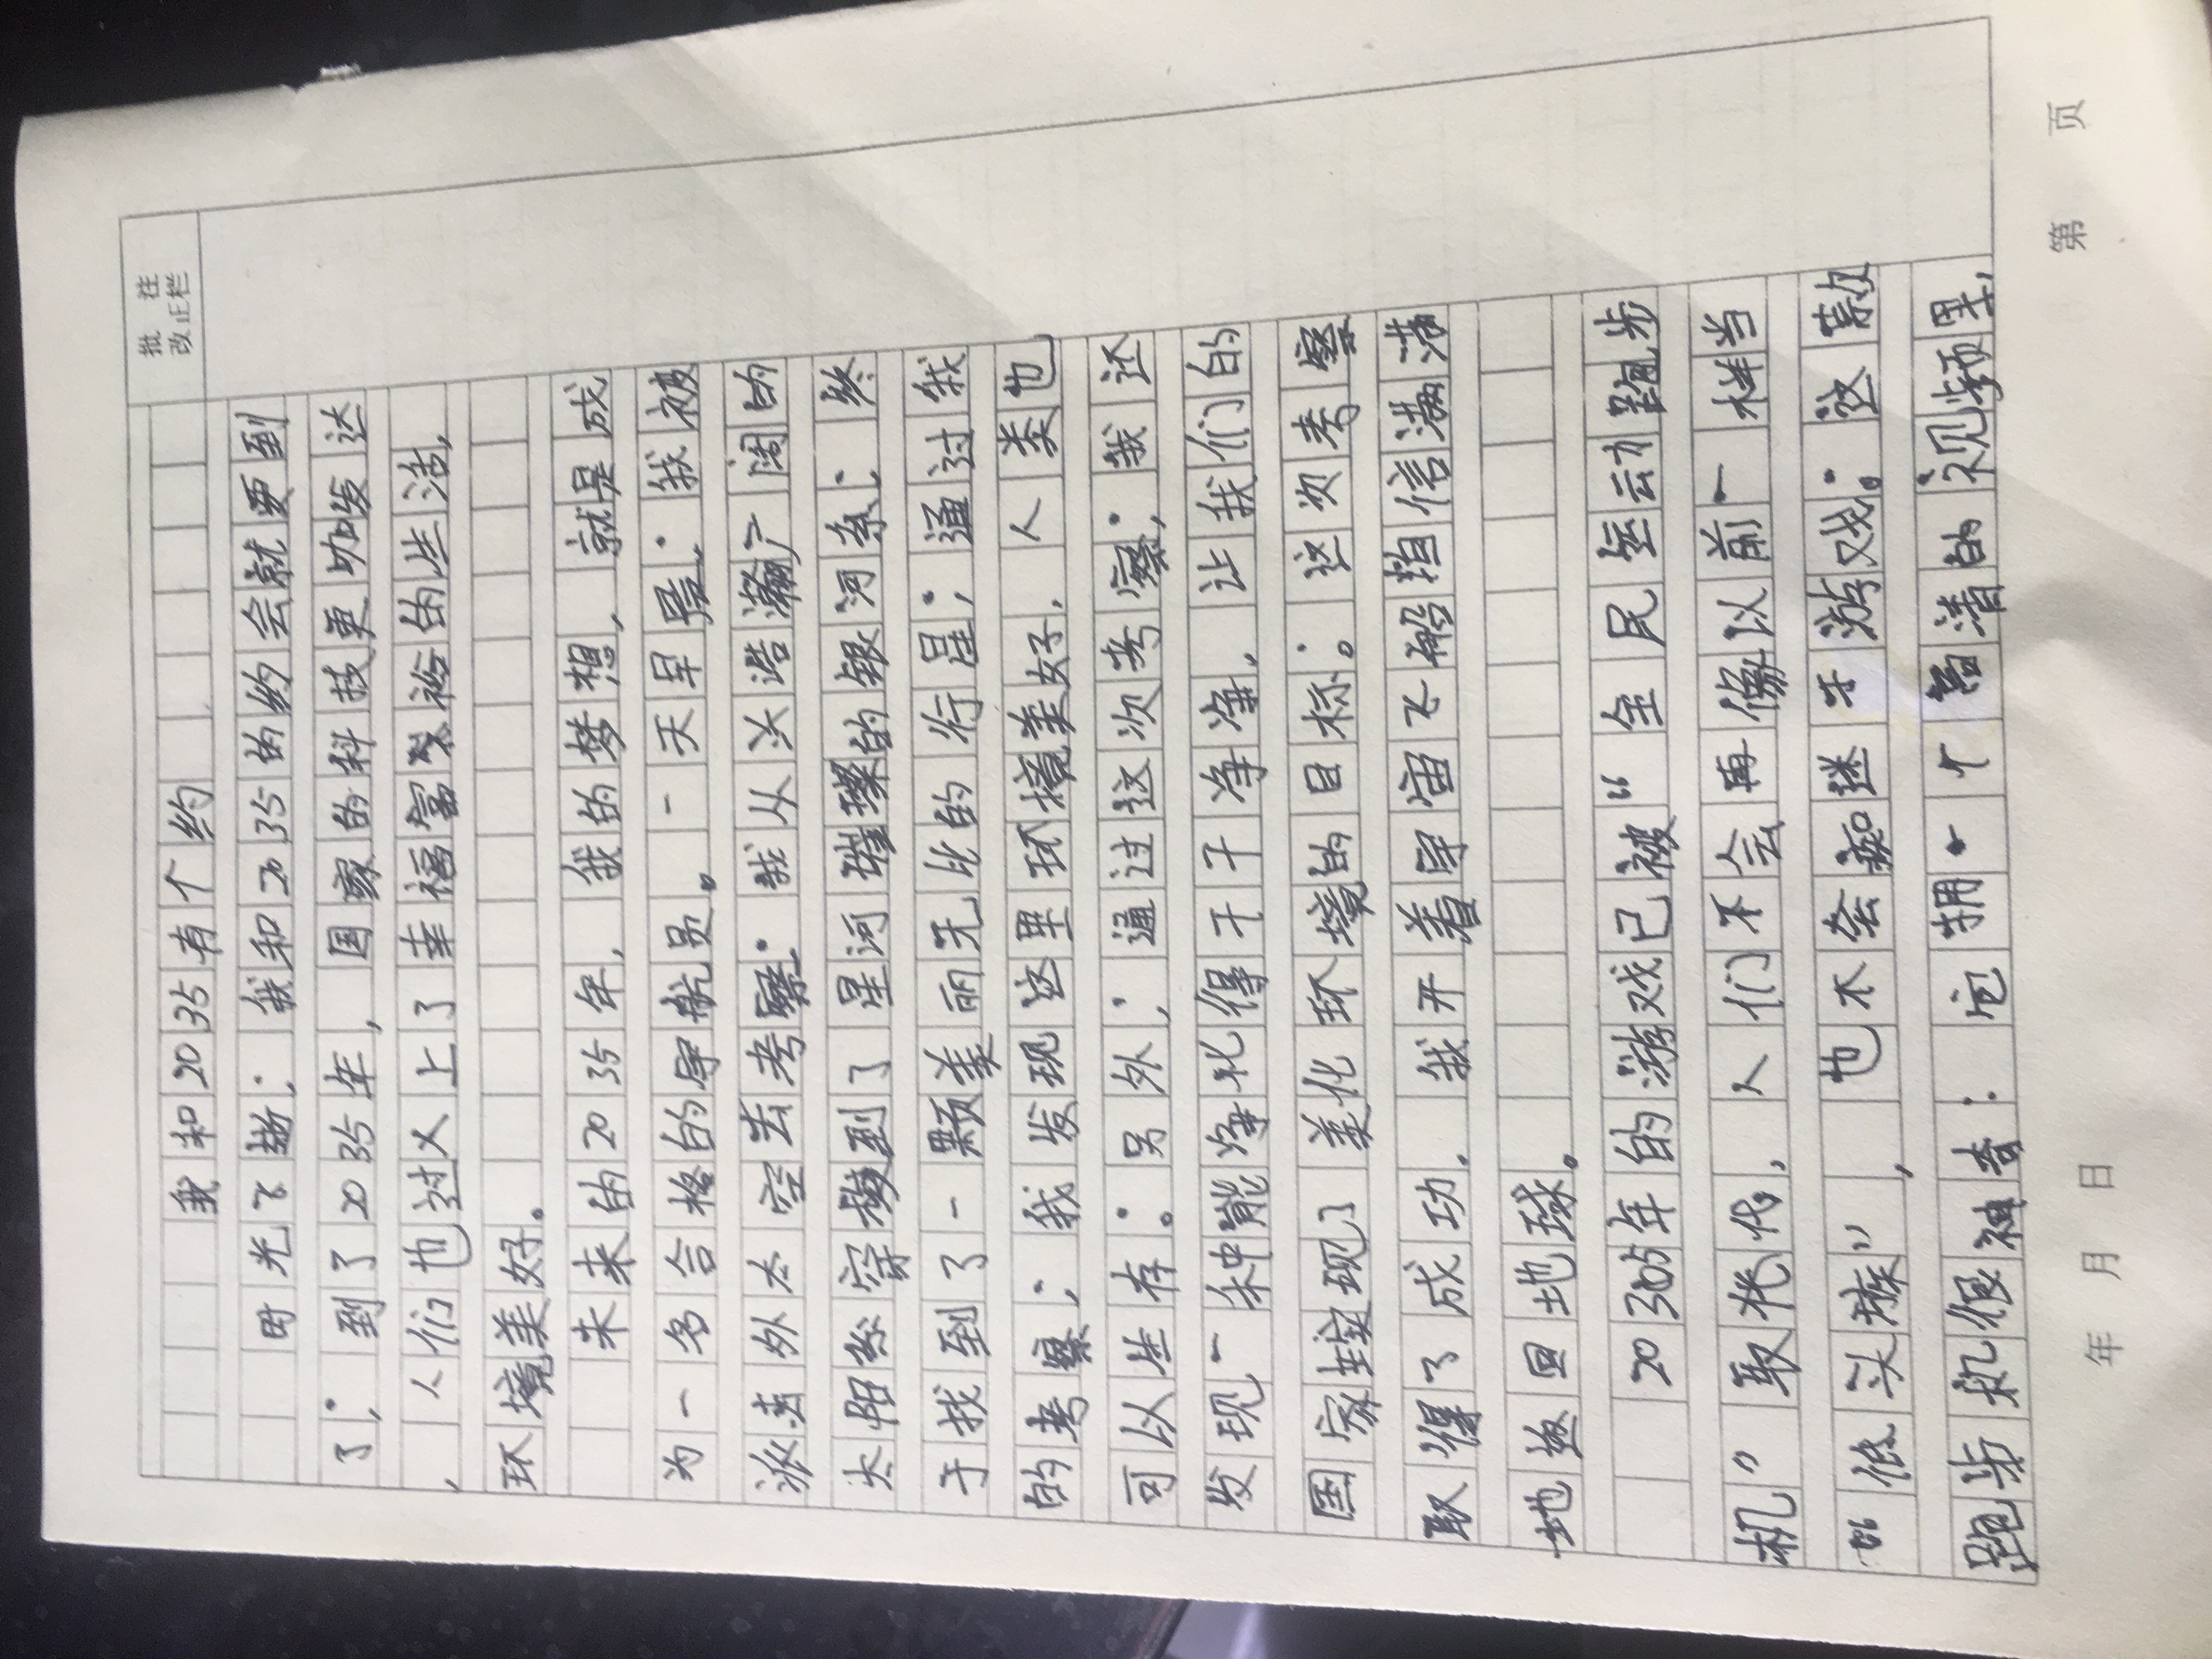 批注
改正栏
我和2035有个约
时光飞逝，我和2035的约会就要到
了，到了2035年，国家的科技更加发达
，人们也过火上了幸福富裕的生活，
环境美好。
未来的2035年，我的梦想，就是成
为一名合格的宇航员。一天早晨，我被
派去外太空去考察。我从浩浩瀚广阔的
太阳系穿梭到了星河璀璨的银河系，终
于找到了一颗美丽无比的行星，通过我
的考察，我发现这里环境美好，人类也
可以生存。另外，通过这次考察，我还
发现一种能净化得干干净净，让我们的
国家实现了美化环境的目标。这次考察
取得了成功，我开着宇宙飞船信满满
地返回地球。
2035年的游戏已被“全民运动跑步
机”取代，人们不会再像以前一样当
“低头族”，也不会痴迷于游戏。这款
跑步机很神奇：它拥有一个高清的视频果，
年 月 日
第 页